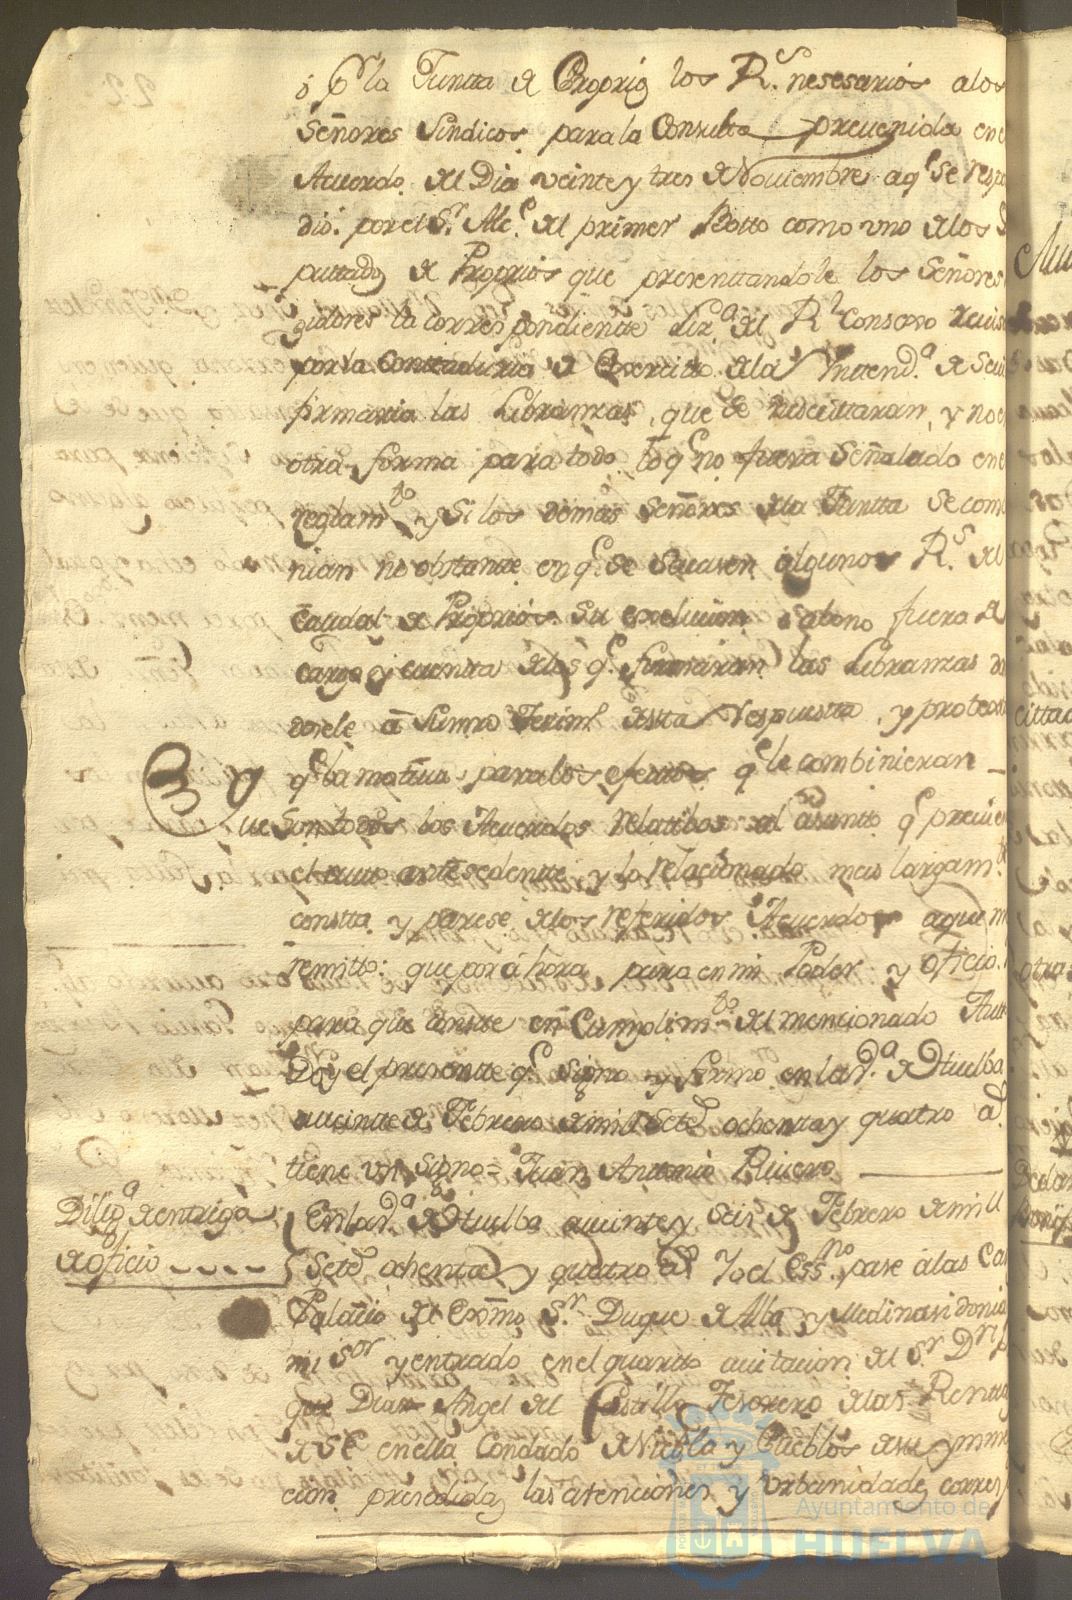 ó Pr la Juntta de Proprios los Rs. nesesarios a los
Señores Sindicos para la Consulta prevenida en e
Acuerdo del Dia veinte y tres de Noviembre a qe se respo
dió por el Sr. Alce. del primer Votto como uno de los D
puttados de Proprios que presenttandole los Señores
gidores la correspondiente Liza. del Rl Consexo
por la Conttaduria de Exercitto de la Yntenda. de Sevi
firmaria las Libranzas que se nescecittaran, y no e
otra forma para todo lo qe no fuera Señalado en e
reglamto y Si los demas Señores de la Juntta se com
nian no obstante en qe se Sacasen algunos Rs. del
Caudal de Proprios Su abono fuera de
cargo y cuenta de los qe firmaran las Libranzas
dosele a Sumrd Testimo de esta respuesta, y protex
qe la motiva para los efectos qe le combinieran
Que Son todos los Acuerdos relatibos al asuntto qe previe
el autto antesedentte y lo relacionado mas largamte
constta y parese de los referidos Acuerdos a que m
remitto: que por áhora paran en mi Poder y oficio.
para que Constte en Cumplimto del mencionado Aut
Doy el presentte qe Signo y firmo en la Va. de Huelba
a veinte de Febrero de mil Setes ochenta y quatro as
tiene un Signo = Juan Antonio Rivero
Diliga de entriga
de oficio
En la Va. de Huelba a veinte y Seis de Febrero de mill
Setes ochenta y quatro as Yo el Essno. pase a las Ca
Palacio del Exmo Sr. Duque de Alba y Medinasidonia
mi Sor y entrado en el quartto avitacion del Sr Dn
Angel del Castillo Tesorero de las Rentas
de S E en ella Condado de Niebla y Pueblos de su
cion presedidas las atenciones y urbanidades corres
Ayuntamiento de
HUELVA